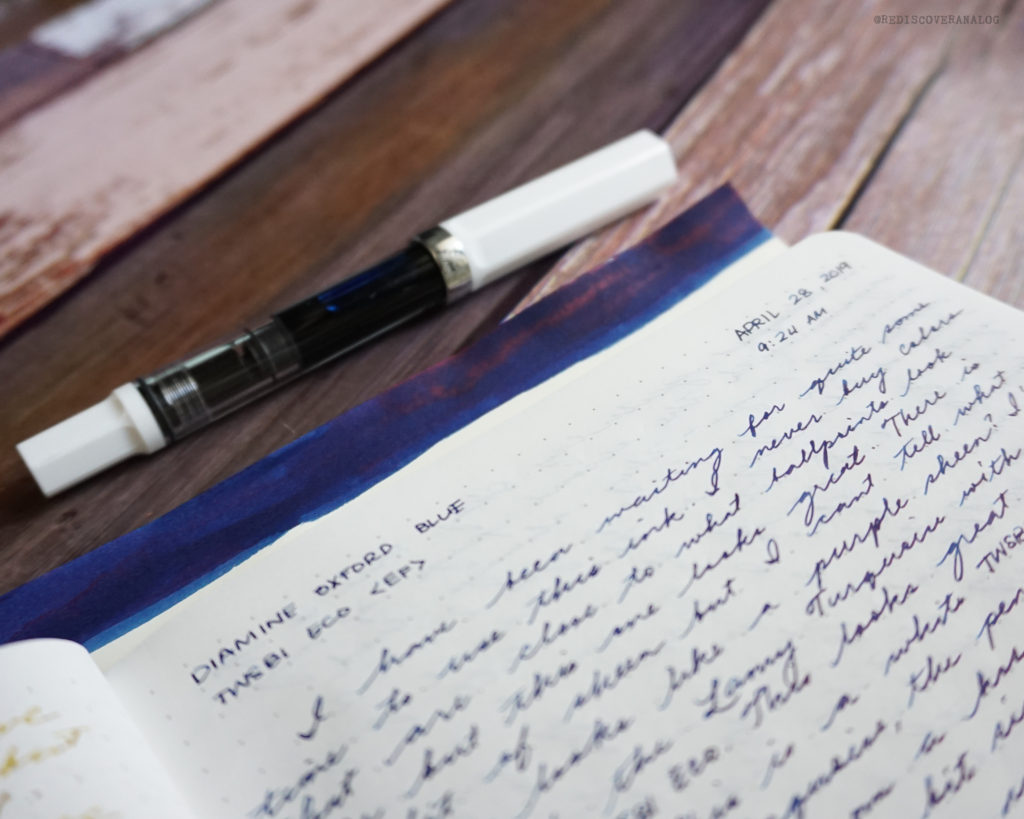 @REDISCOVERANALOG
APRIL 28, 2019
9:24 AM
DIAMINE OXFORD BLUE
TWSBI ECO <EF>
I have been waiting for quite some
time to use this ink. I never buy colors
that are close to what ballpoints look
but this one looks great. There is
bit of sheen but I can't tell what
looks like a purple sheen? I'
the Lamy Turquoise with
ECO. This looks great.
is a white TWSB
the pen
a
bit